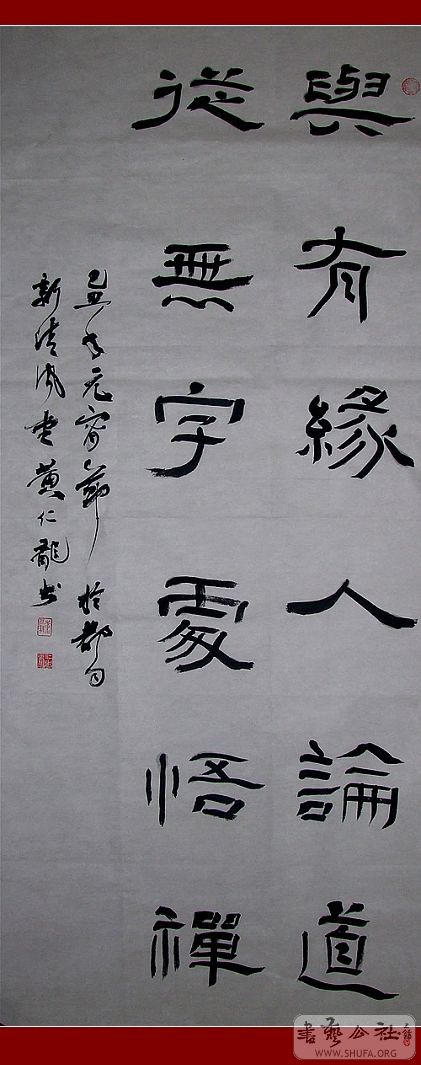 與有緣人論道
從無字處悟禪
己丑年元宵節於都匀
新清風堂黃仁龍書
書藝公社
WWW.SHUFA.ORG